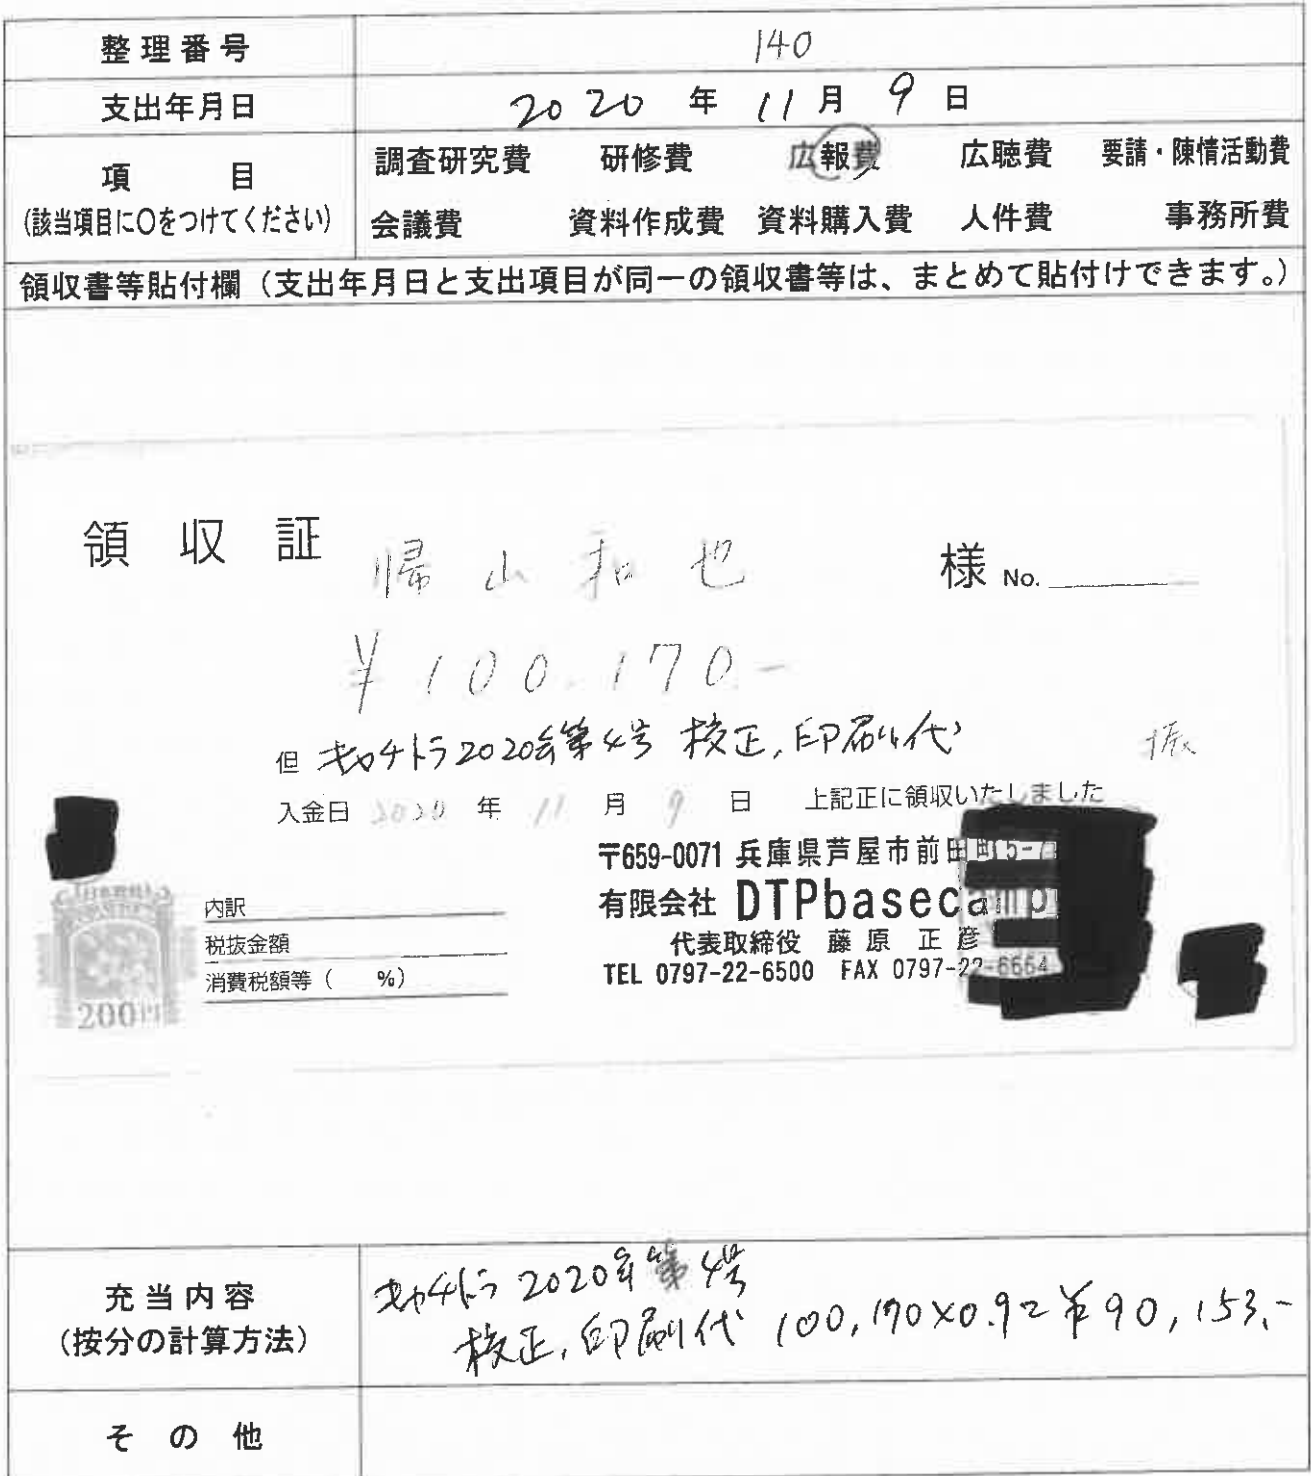 整理番号 140
支出年月日 2020 年 11 月 9 日
項 目
(該当項目に〇をつけてください)
調査研究費 研修費 広報費 広聴費 要請・陳情活動費
会議費 資料作成費 資料購入費 人件費 事務所費
領収書等貼付欄（支出年月日と支出項目が同一の領収書等は、まとめて貼付けできます。）
領収証 帰山和也 様 No.
¥100,170-
但 キャチトラ2020年第4号 校正,印刷代 振
入金日 2020 年 11 月 9 日 上記正に領収いたしました
〒659-0071 兵庫県芦屋市前田町5-7
有限会社 DTPbasecamp
代表取締役 藤原正彦
TEL 0797-22-6500 FAX 0797-22-6664
内訳
税抜金額
消費税額等（ %）
200円
充当内容
(按分の計算方法)
キャチトラ 2020年第4号
校正,印刷代 100,170×0.9=¥90,153.-
その他